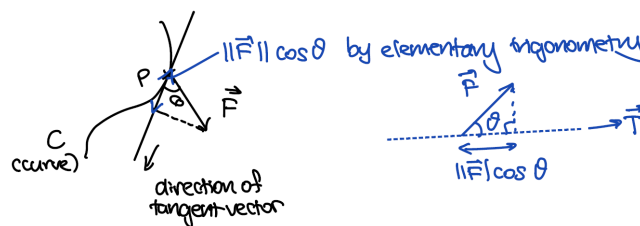 ||F⃗|| cos θ by elementary trigonometry
P
θ
F⃗
C
(curve)
direction of
tangent vector
F⃗
θ
T⃗
||F⃗|cos θ